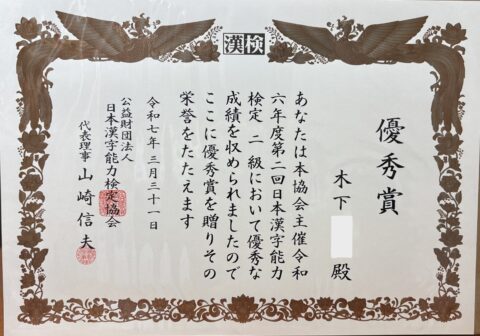 漢検
優秀賞
木下 殿
あなたは本協会主催令和
六年度第二回日本漢字能力
検定 二級において優秀な
成績を収められましたので
ここに優秀賞を贈りその
栄誉をたたえます
令和七年三月三十一日
公益財団法人
日本漢字能力検定協会
代表理事 山崎信夫